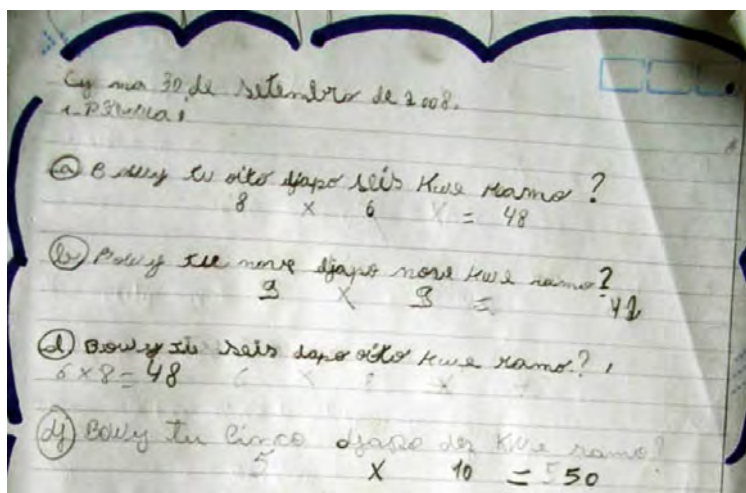 Cy ma 30 de setembro de 2008.
a) Bowy tu oito djapo seis Kwe ramo?
8 x 6 = 48
b) Bowy tu nove djapo nove Kwe ramo?
9 x 9 =
d) Bowy tu seis dapo oito Kwe ramo?
6 x 8 = 48
dj) Bowy tu cinco djapo dez Kwe ramo?
5 x 10 = 50